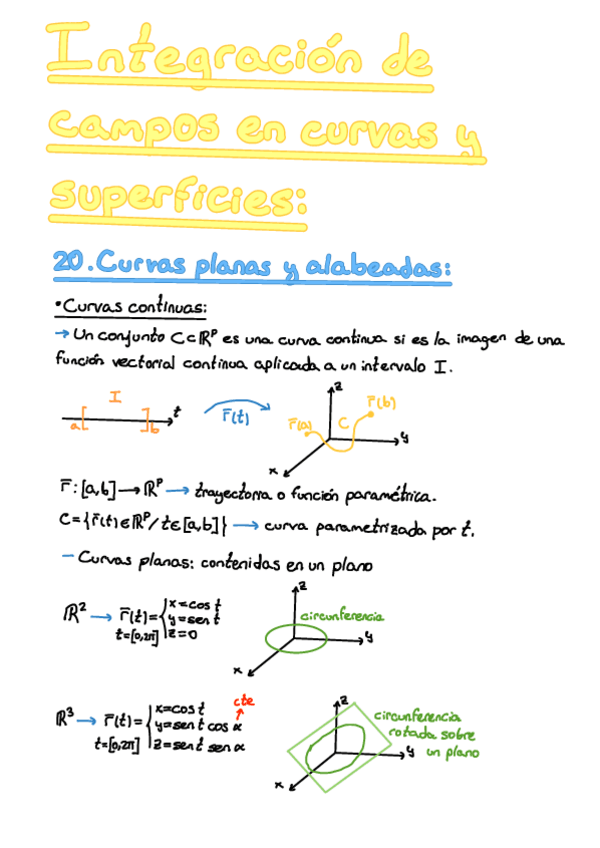 Integración de
campos en curvas y
superficies:
20. Curvas planas y alabeadas:
• Curvas continuas:
→ Un conjunto C⊂ℝᵖ es una curva continua si es la imagen de una
función vectorial continua aplicada a un intervalo I.
I
a [ ] b t
r̄(t)
r̄(a) C r̄(b)
z
y
x
r̄: [a,b] → ℝᵖ → trayectoria o función paramétrica.
C={r̄(t)∈ℝᵖ/t∈[a,b]} → curva parametrizada por t.
- Curvas planas: contenidas en un plano
ℝ² → r̄(t)= { x=cos t
y=sen t
z=0
t=[0,2π]
z
circunferencia
y
x
ℝ³ → r̄(t)= { x=cos t
y=sen t cos α
z=sen t sen α
t=[0,2π]
cte
z
circunferencia
rotada sobre
un plano
y
x